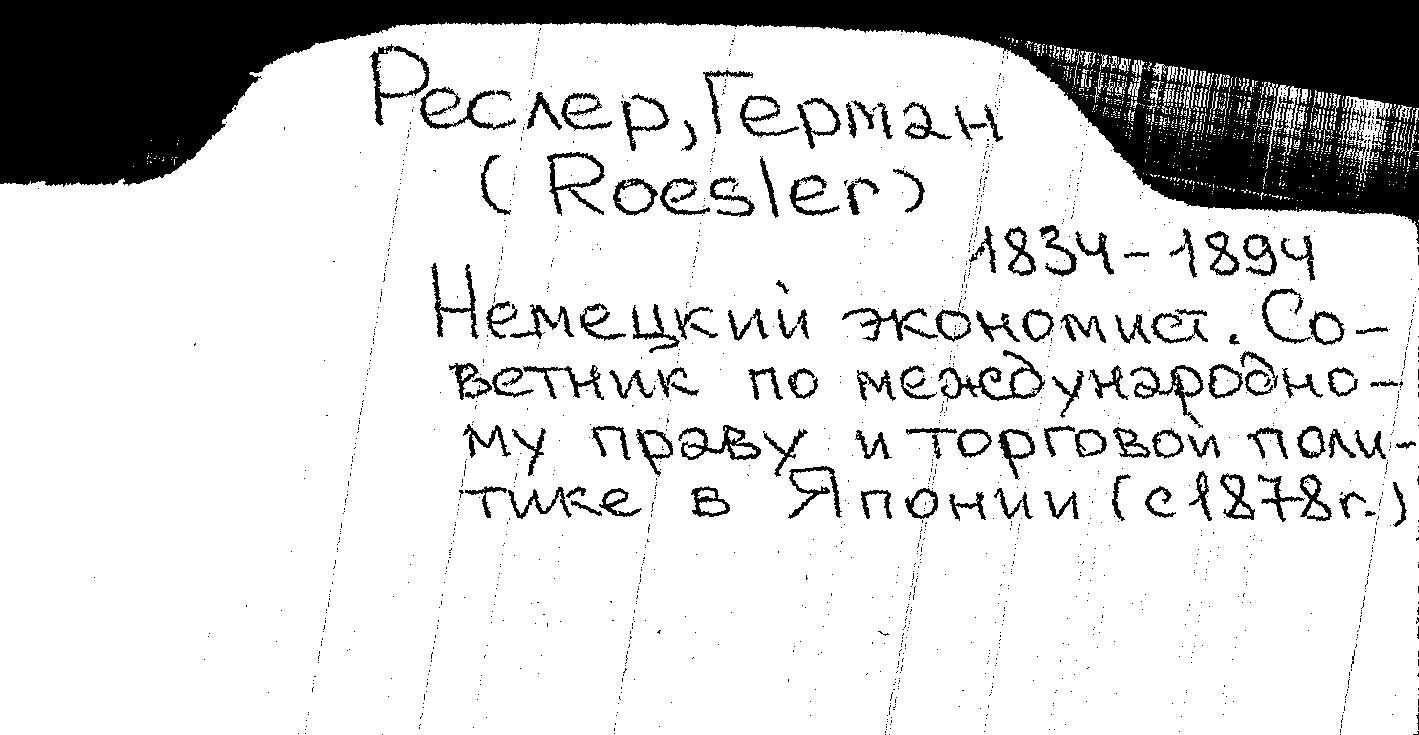 Реслер, Герман
(Roesler)
1834-1894
Немецкий экономист. Со-
ветник по международно-
му праву и торговой поли-
тике в Японии (с 1878г.)